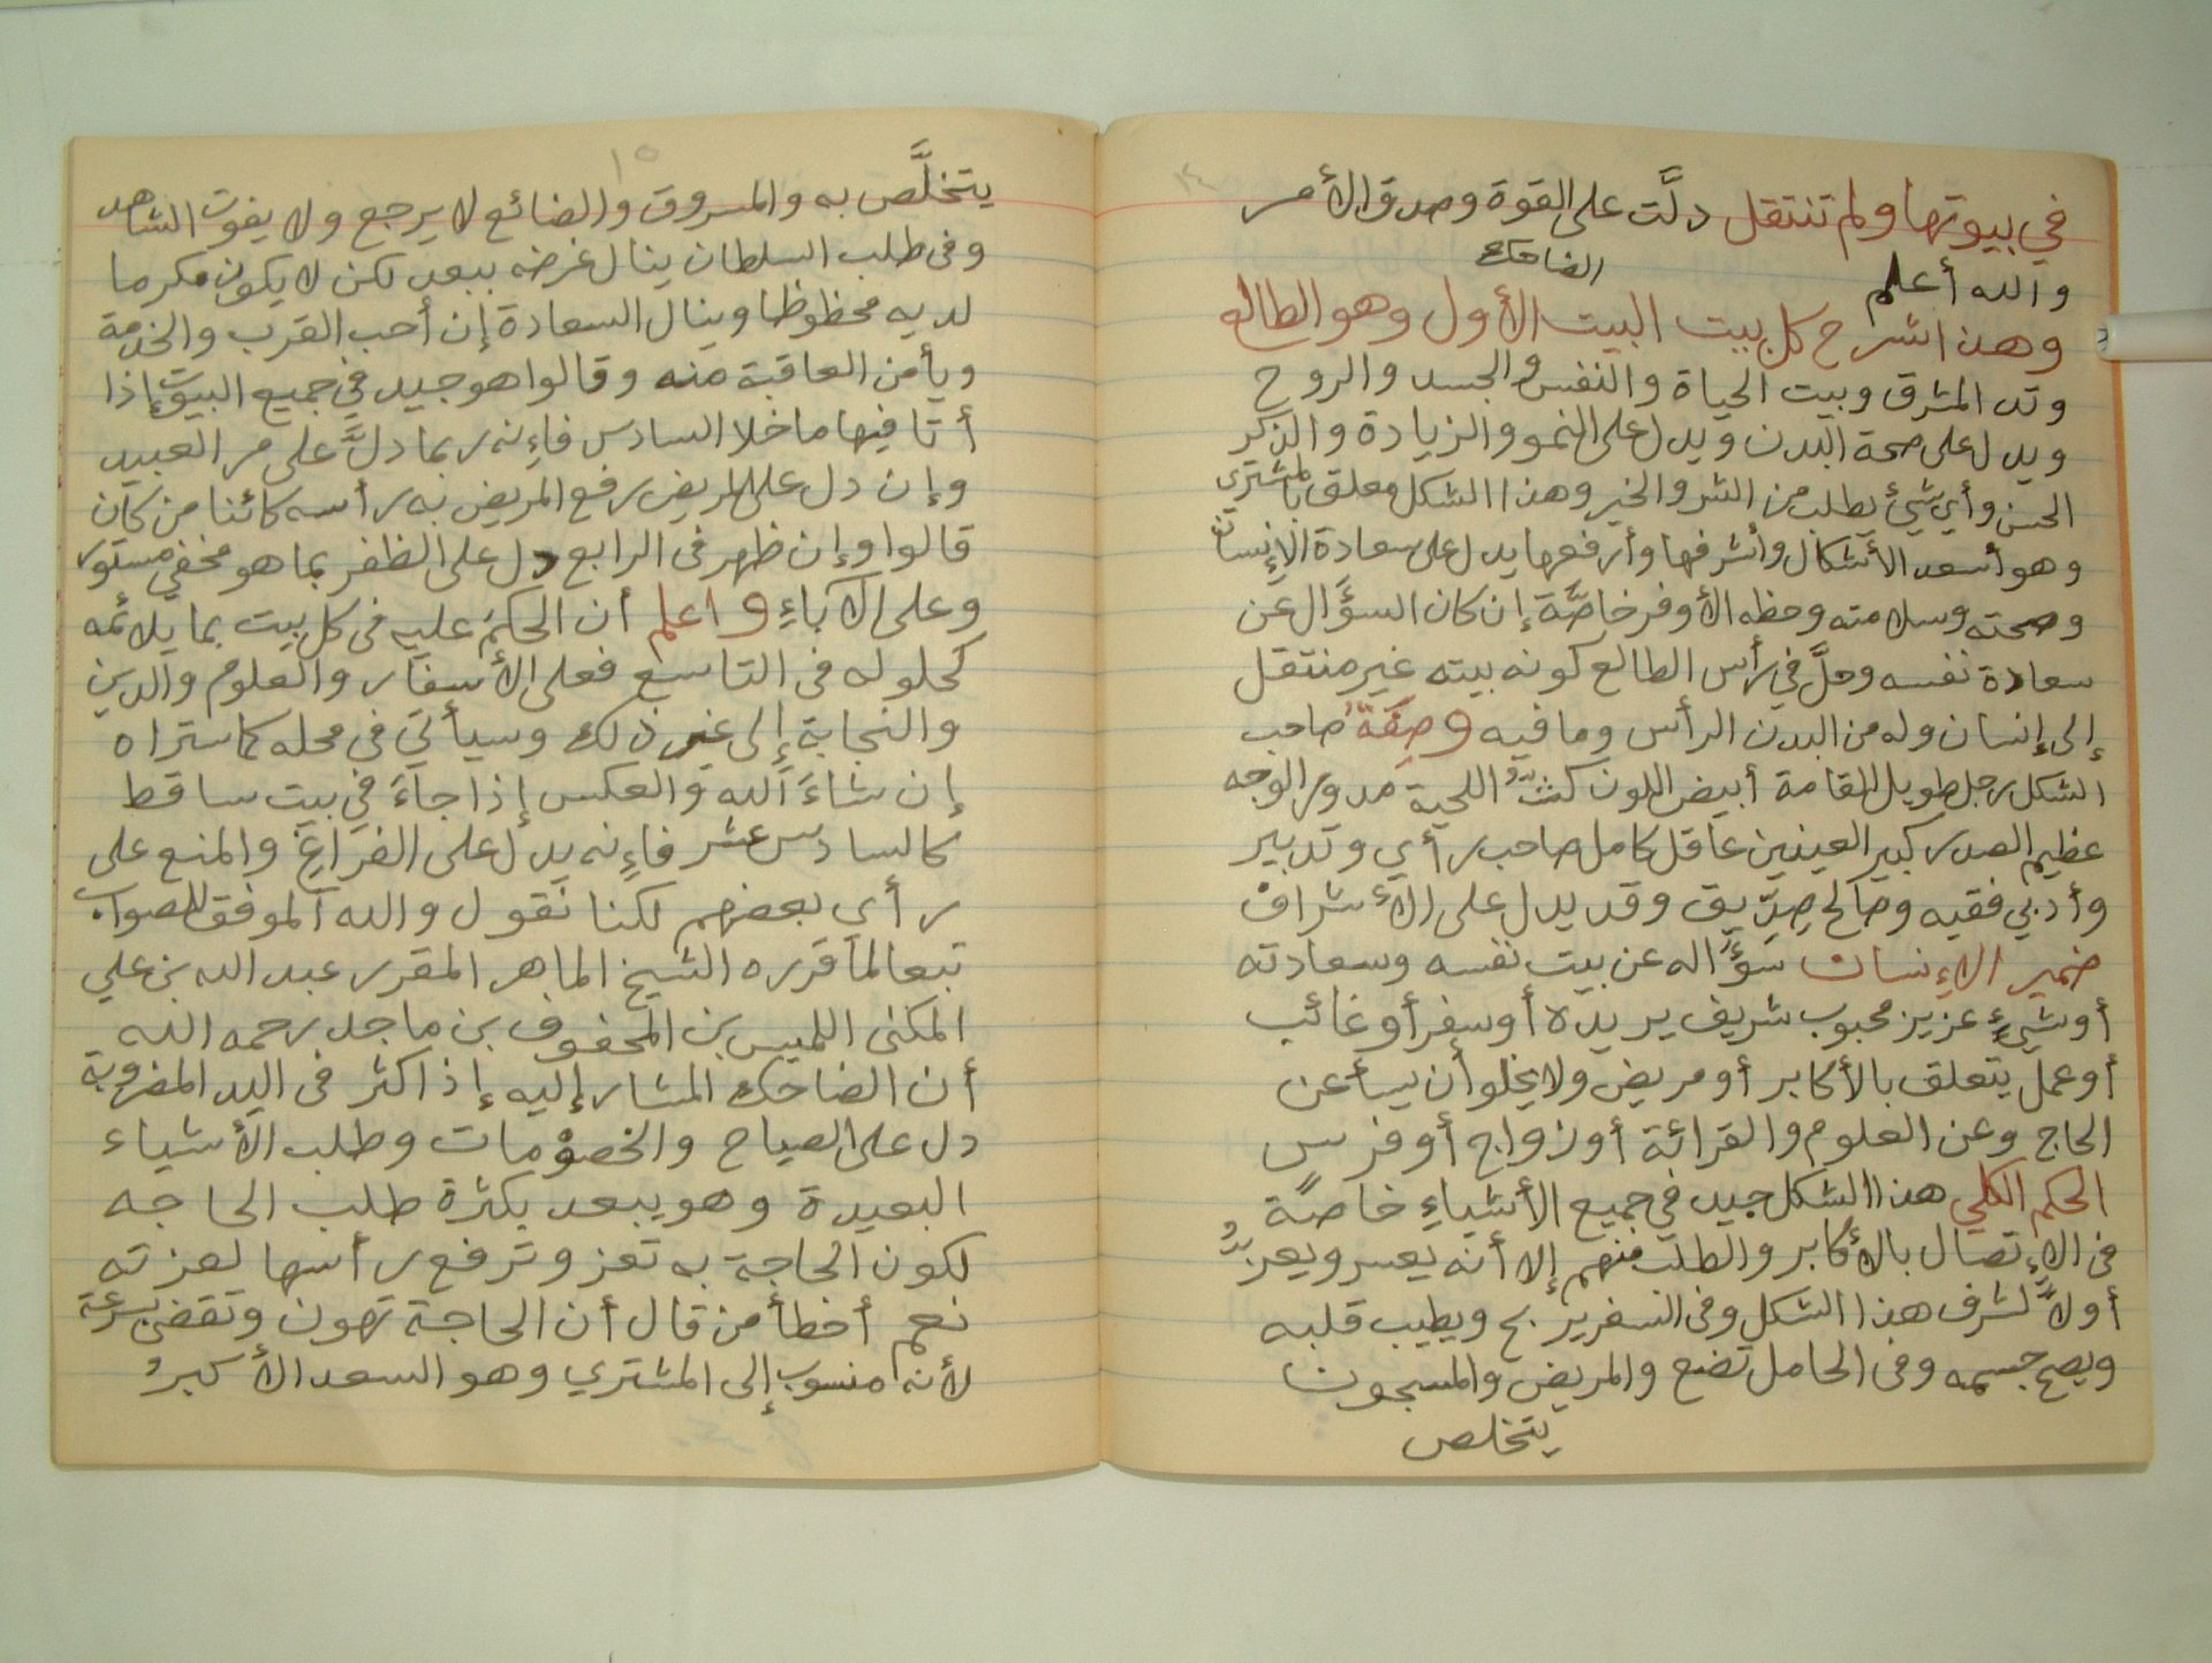 ١٤
في بيوتها ولم تنتقل دلَّت على القوة وصدق الأمر
والله أعلم
الضاحك
وهذا شرح كل بيت البيت الأول وهو الطالع
وتد المشرق وبيت الحياة والنفس والجسد والروح
ويدل على صحة البدن ويدل على النمو والزيادة والذكر
الحسن وأي شيئ يطلب من الشر والخير وهذا الشكل معلق بالمشتري
وهو أسعد الأشكال وأشرفها وأرفعها يدل على سعادة الإنسان
وصحته وسلامته وحظه الأوفر خاصَّة إن كان السؤال عن
سعادة نفسه وحلَّ في رأس الطالع كونه بيته غير منتقل
إلى إنسان وله من البدن الرأس وما فيه وصِفَةُ صاحب
الشكل رجل طويل القامة أبيض اللون كثُّ اللحية مدور الوجه
عظيم الصدر كبير العينين عاقل كامل صاحب رأي وتدبير
وأدبي فقيه وصالح صِدِّيق وقد يدل على الأشراف
ضمير الإنسان سؤاله عن بيت نفسه وسعادته
أو شيءٍ عزيز محبوب شريف يريده أو سفر أو غائب
أو عمل يتعلق بالأكابر أو مريض ولا يخلو أن يسأ عن
الحاج وعن العلوم والقرائة أو زواج أو فرس
الحكم الكلي هذا الشكل جيد في جميع الأشياءِ خاصةً
في الإتصال بالأكابر والطلب منهم إلا أنه يعسر ويعزُّ
أولاً لشرف هذا الشكل وفى السفر يربح ويطيب قلبه
ويصح جسمه وفى الحامل تضع والمريض والمسجون
يتخلص
١٥
يتخلَّص به والمسروق والضائع لا يرجع ولا يفوت الشاهد
وفى طلب السلطان ينال غرضه ببعد لكن لا يكون مكرما
لديه محظوظا وينال السعادة إن أحب القرب والخدمة
ويأمن العاقبة منه وقالوا هو جيد في جميع البيوت إذا
أتا فيها ما خلا السادس فإنه ربما دلَّ على مر العبيد
وإن دل على المريض رفع المريض به رأسه كائنا من كان
قالوا وإن ظهر فى الرابع دل على الظفر بما هو مخفي مستور
وعلى الآباءِ واعلم أن الحكم عليه فى كل بيت بما يلائمه
كحلوله فى التاسع فعلى الأسفار والعلوم والدين
والنجابة إلى غير ذلك وسيأتي فى محله كما ستراه
إن شاءَ الله والعكس إذا جاءَ في بيت ساقط
كالسادس عشر فإنه يدل على الفراغ والمنع على
رأي بعضهم لكنا نقول والله الموفق للصواب
تبعا لما قرره الشيخ الماهر المقرر عبد الله بن علي
المكنى اللميس بن المحفوف بن ماجد رحمه الله
أن الضاحك المشار إليه إذا كثر فى اليد المضروبة
دل على الصياح والخصومات وطلب الأشياء
البعيدة وهو يبعد بكثرة طلب الحاجه
لكون الحاجة به تعز وترفع رأسها لعزته
نعم أخطأ من قال أن الحاجة تهون وتقضى بسرعة
لأنه منسوب إلى المشتري وهو السعد الأكبرُ